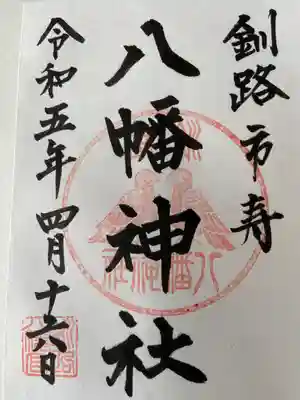 釧路市寿
八幡神社
令和五年四月十六日